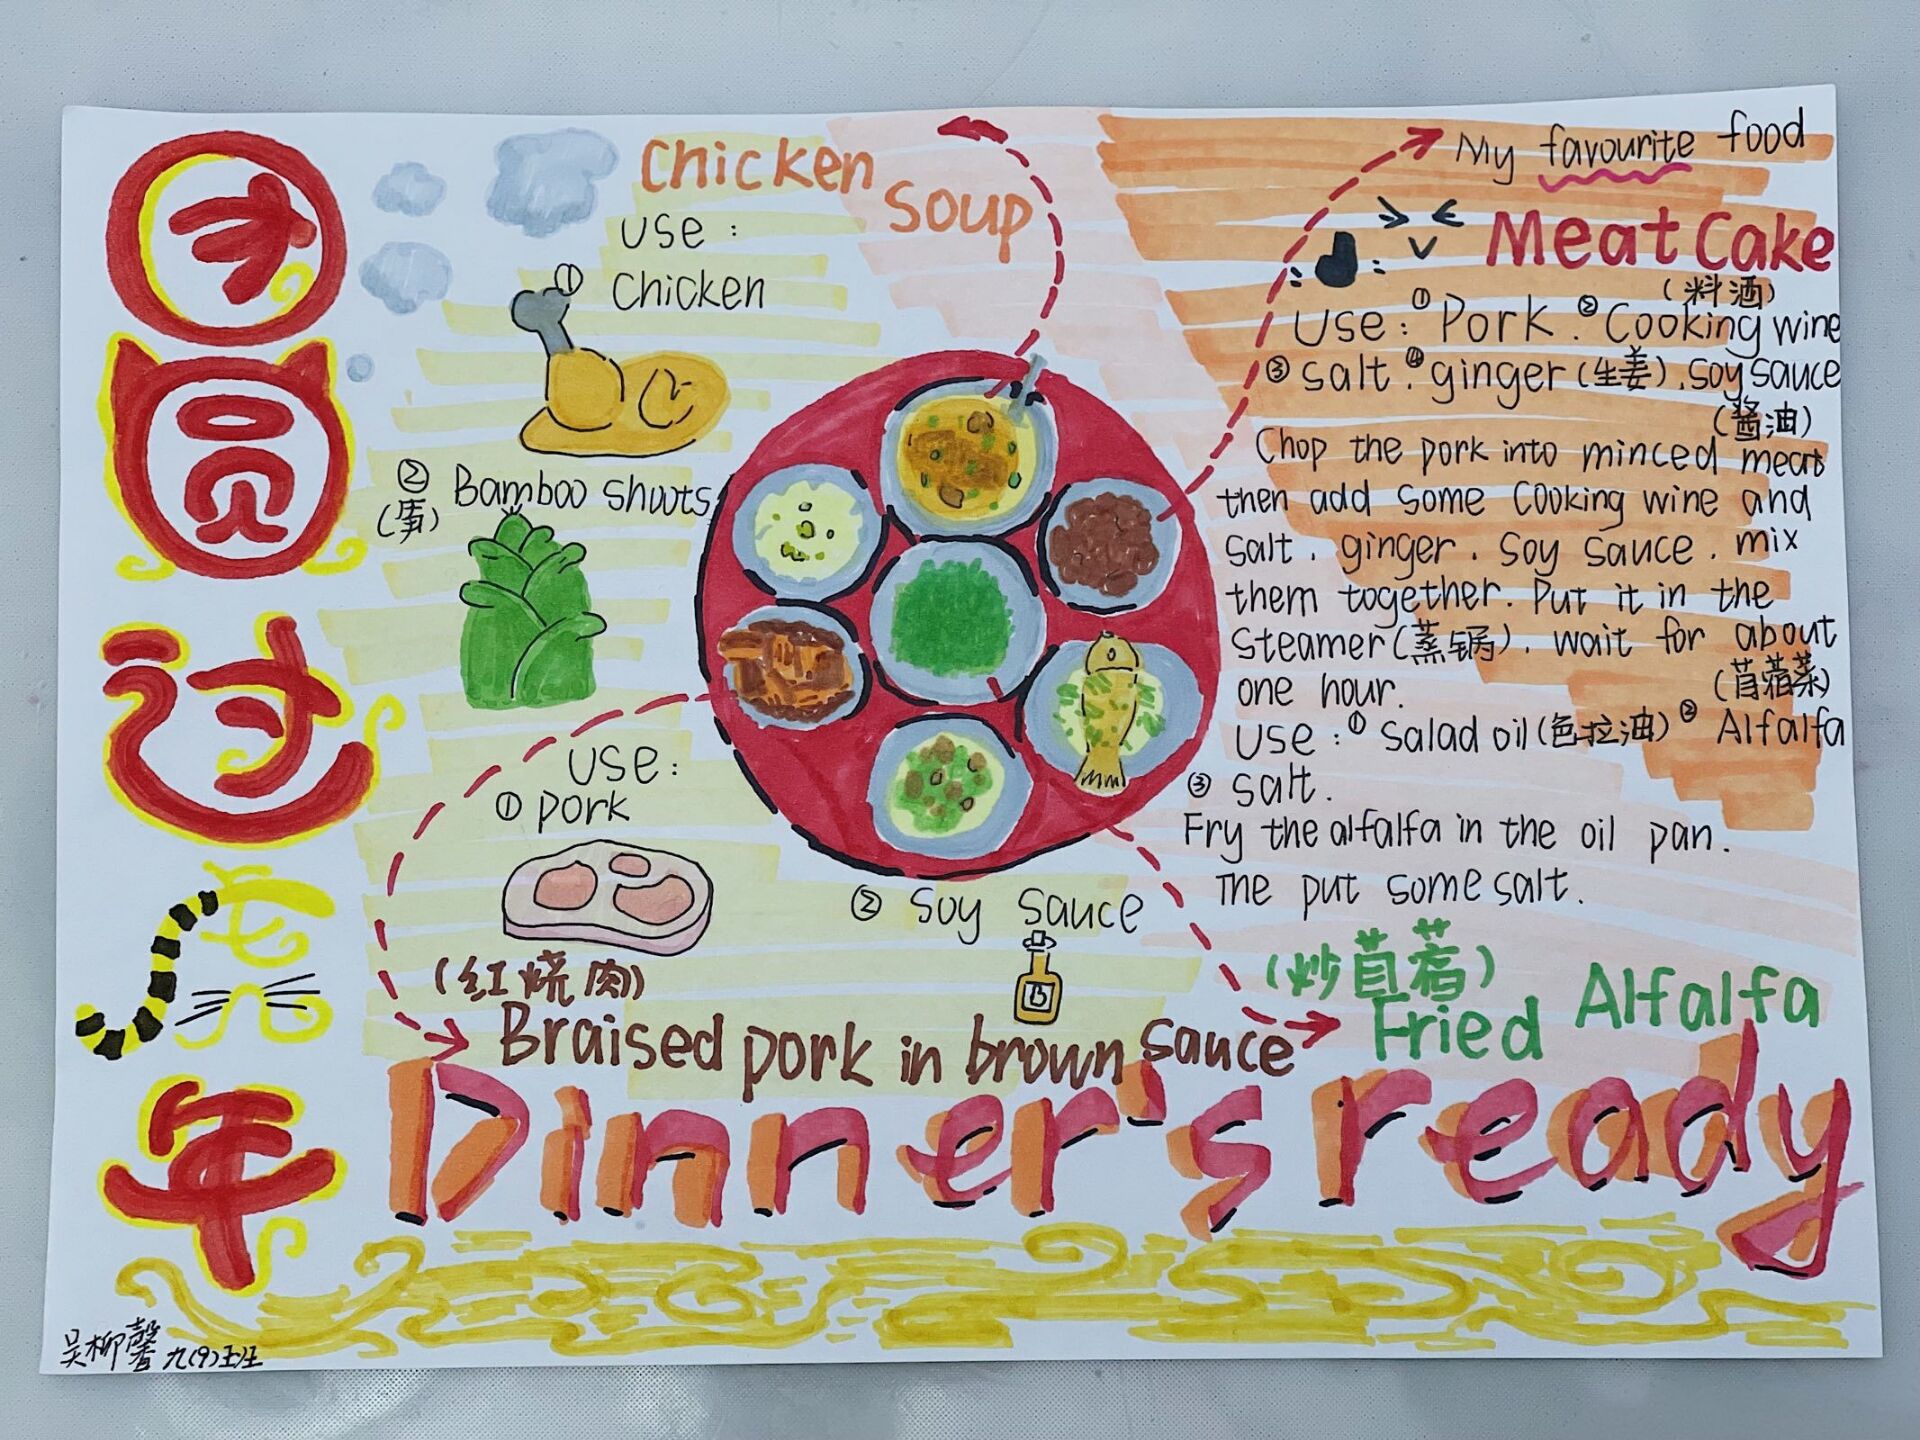 团
圆
过
虎
年
Chicken
soup
use :
① chicken
② Bamboo shoots
use :
① pork
② soy sauce
(红烧肉)
Braised pork in brown sauce
My favourite food
Meat Cake
(料酒)
Use : ① Pork . ② Cooking wine
③ salt . ④ ginger (生姜) . soy sauce
(酱油)
Chop the pork into minced meat
then add some cooking wine and
salt . ginger . soy sauce . mix
them together. Put it in the
steamer (蒸锅) . wait for about
one hour.
(苜蓿菜)
Use : ① salad oil (色拉油) ② Alfalfa
③ salt .
Fry the alfalfa in the oil pan .
The put some salt .
(炒苜蓿)
Fried Alfalfa
Dinner's ready
吴柳馨 九(9)班